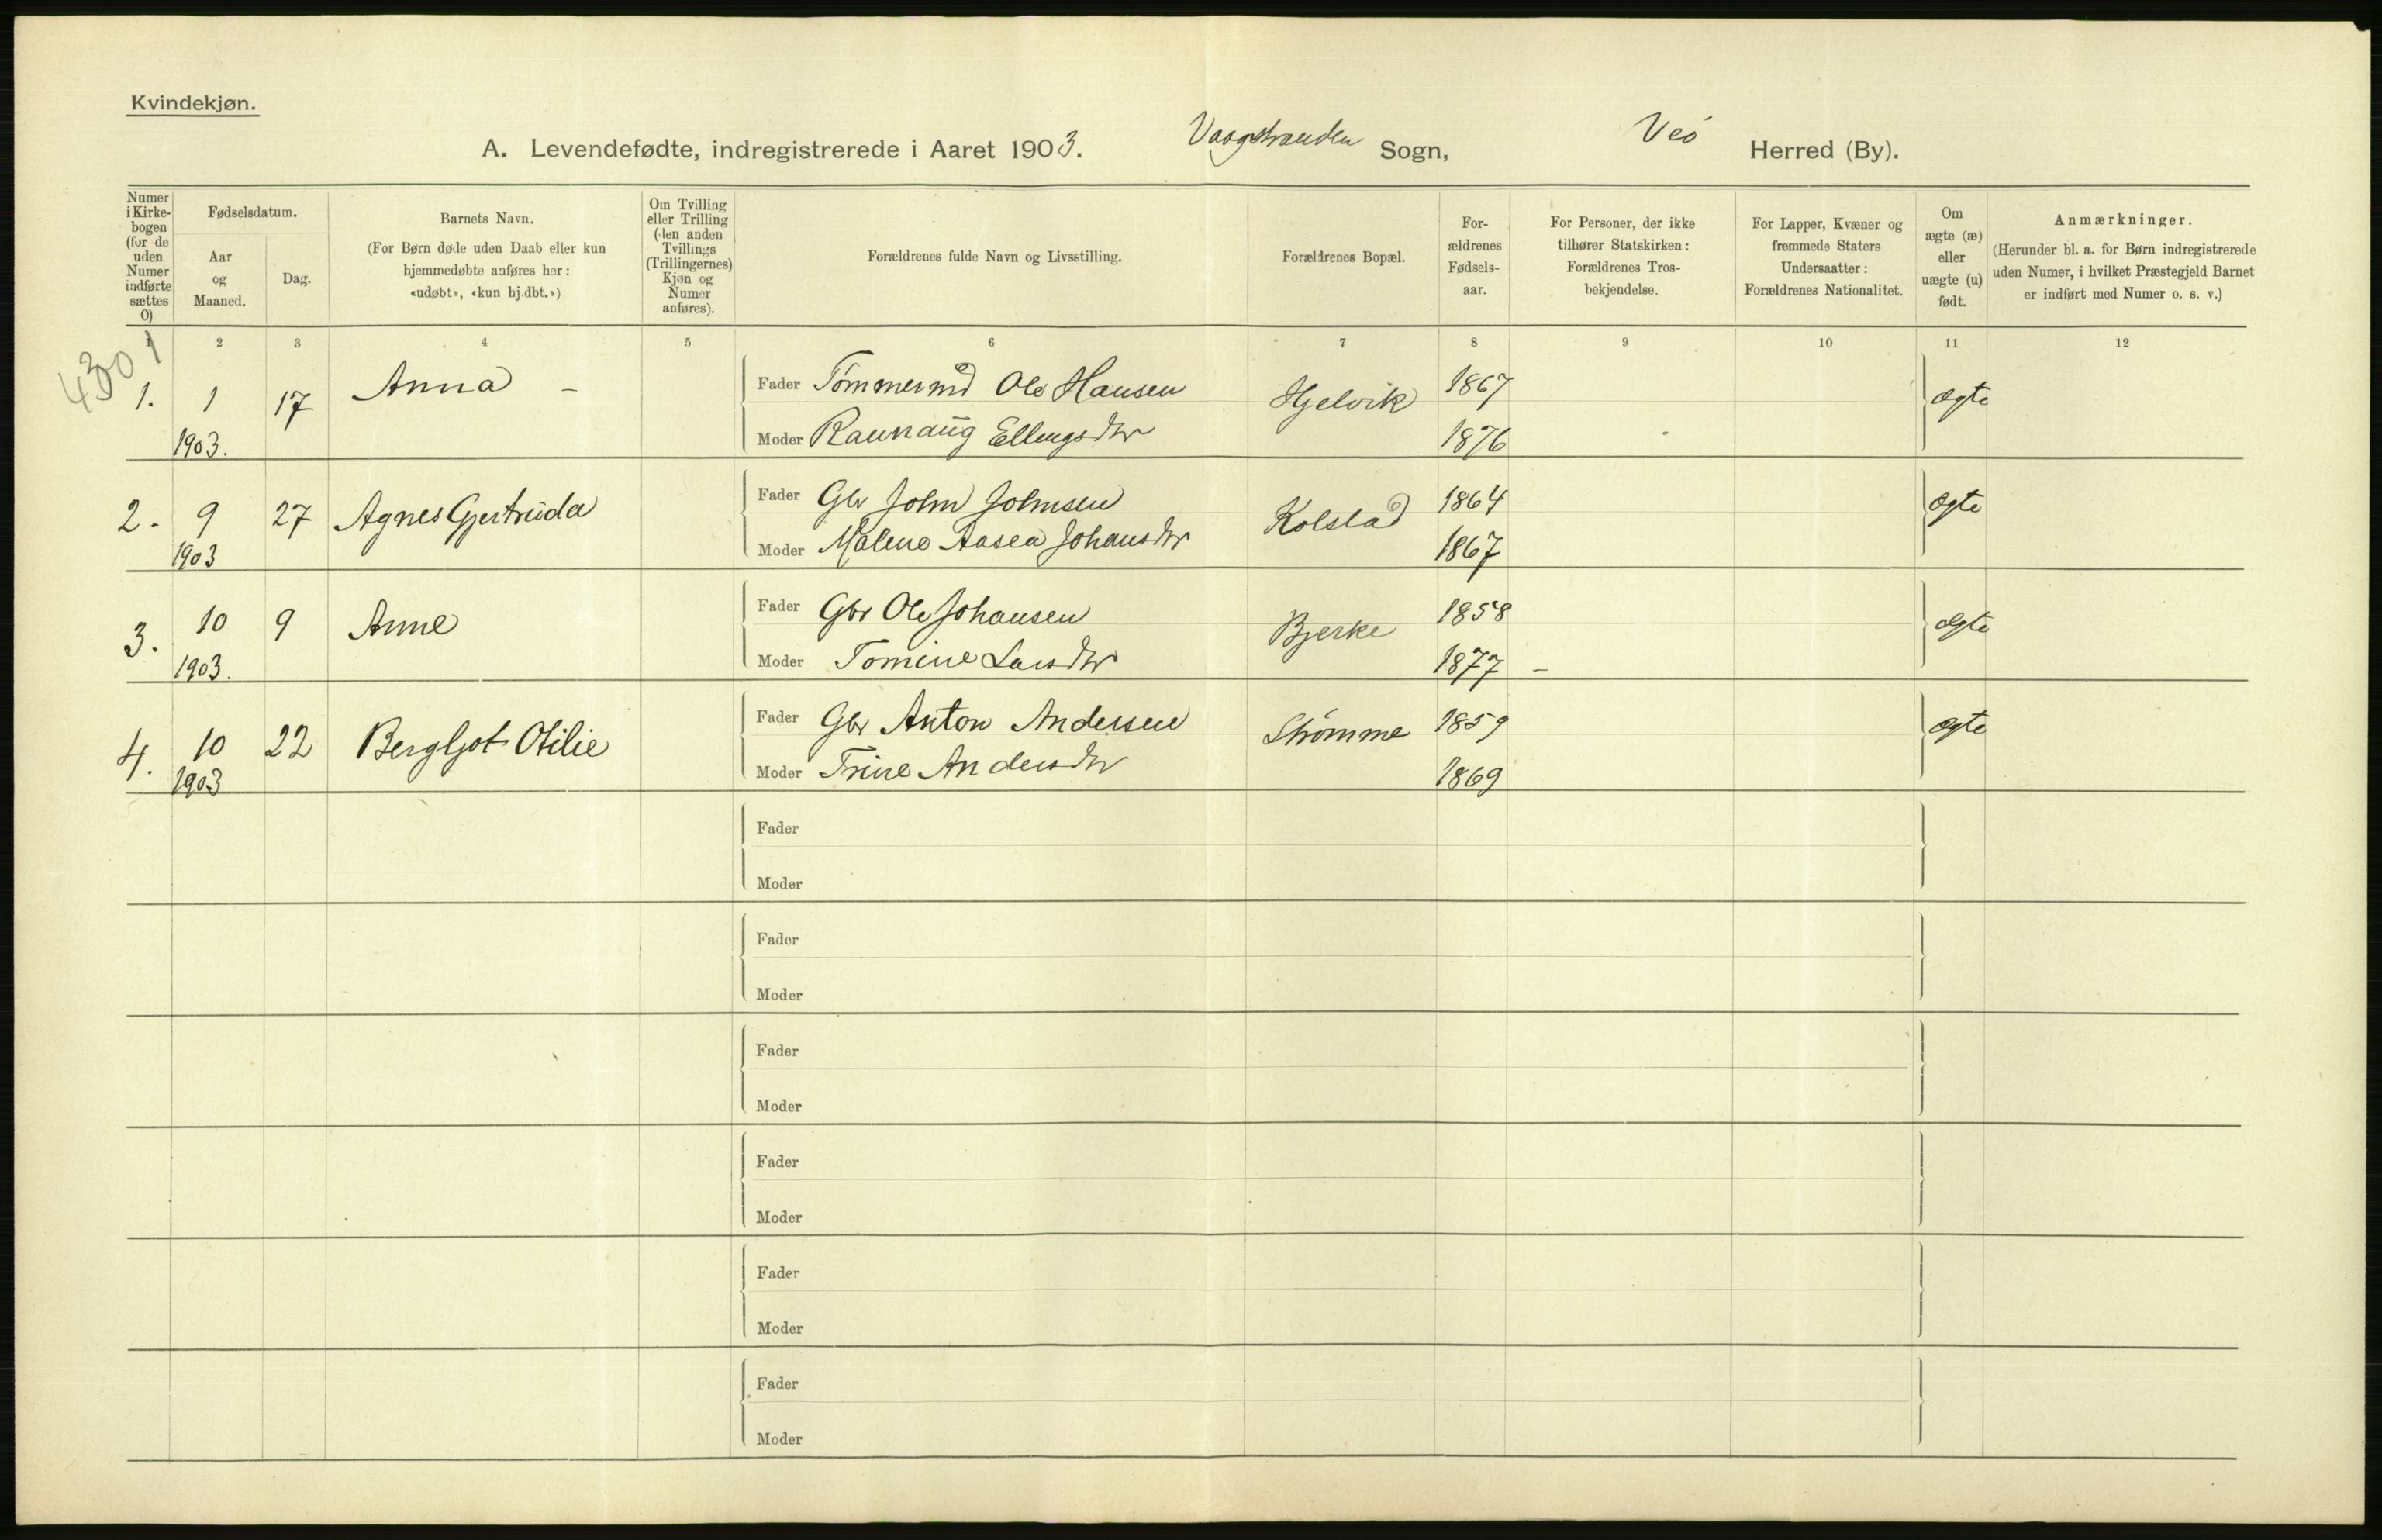 Kvindekjøn.
A. Levendefødte, indregistrerede i Aaret 1903. Vaagstranden Sogn, Veø Herred (By).
Numer i Kirkebogen (for de uden Numer indførte sættes 0)
Fødselsdatum.
Aar og Maaned.
Dag.
Barnets Navn.
(For Børn døde uden Daab eller kun
hjemmedøbte anføres her:
«udøbt», «kun hj.dbt.»)
Om Tvilling
eller Trilling
(den anden
Tvillings
(Trillingernes)
Kjøn og
Numer
anføres).
Forældrenes fulde Navn og Livsstilling.
Forældrenes Bopæl.
For-
ældrenes
Fødsels-
aar.
For Personer, der ikke
tilhører Statskirken:
Forældrenes Tros-
bekjendelse.
For Lapper, Kvæner og
fremmede Staters
Undersaatter:
Forældrenes Nationalitet.
Om
ægte (æ)
eller
uægte (u)
født.
Anmærkninger.
(Herunder bl. a. for Børn indregistrerede
uden Numer, i hvilket Præstegjeld Barnet
er indført med Numer o. s. v.)
1 2 3 4 5 6 7 8 9 10 11 12
1. 1 1903. 17 Anna – Fader Tømmermd Ole Hansen Hjelvik 1867 ægte
Moder Raunaug Ellingsdtr 1876
2. 9 1903 27 Agnes Gjertruda Fader Gbr John Johnsen Kolstad 1864 ægte
Moder Malene Aasea Johansdtr 1867
3. 10 1903. 9 Anne Fader Gbr Ole Johansen Bjerke 1858 ægte
Moder Tomine Larsdtr 1877 –
4. 10 1903 22 Bergljot Otilie Fader Gbr Anton Andersen Strømme 1859 ægte
Moder Trine Andersdtr 1869
Fader
Moder
Fader
Moder
Fader
Moder
Fader
Moder
Fader
Moder
Fader
Moder